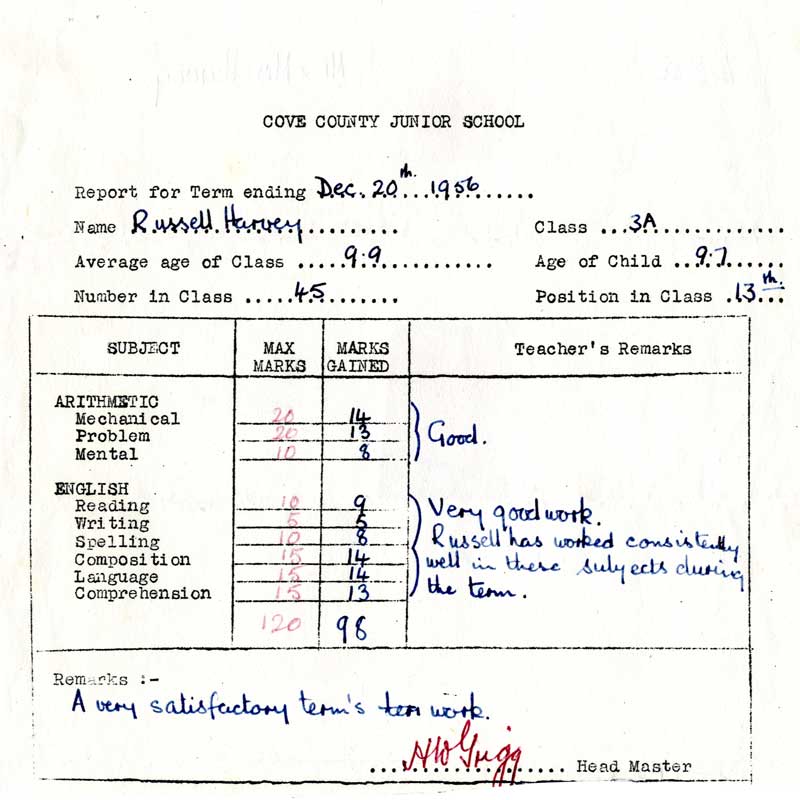 COVE COUNTY JUNIOR SCHOOL
Report for Term ending Dec. 20th 1956
Name Russell Harvey Class 3A
Average age of Class 9.9 Age of Child 9.7
Number in Class 45 Position in Class 13th
SUBJECT MAX MARKS MARKS GAINED Teacher's Remarks
ARITHMETIC
Mechanical 20 14
Problem 20 13 Good.
Mental 10 8
ENGLISH
Reading 10 9 Very good work.
Writing 5 5
Spelling 10 8 Russell has worked consistently
Composition 15 14 well in these subjects during
Language 15 14
Comprehension 15 13 the term.
120 98
Remarks :-
A very satisfactory term's work.
HW Grigg Head Master